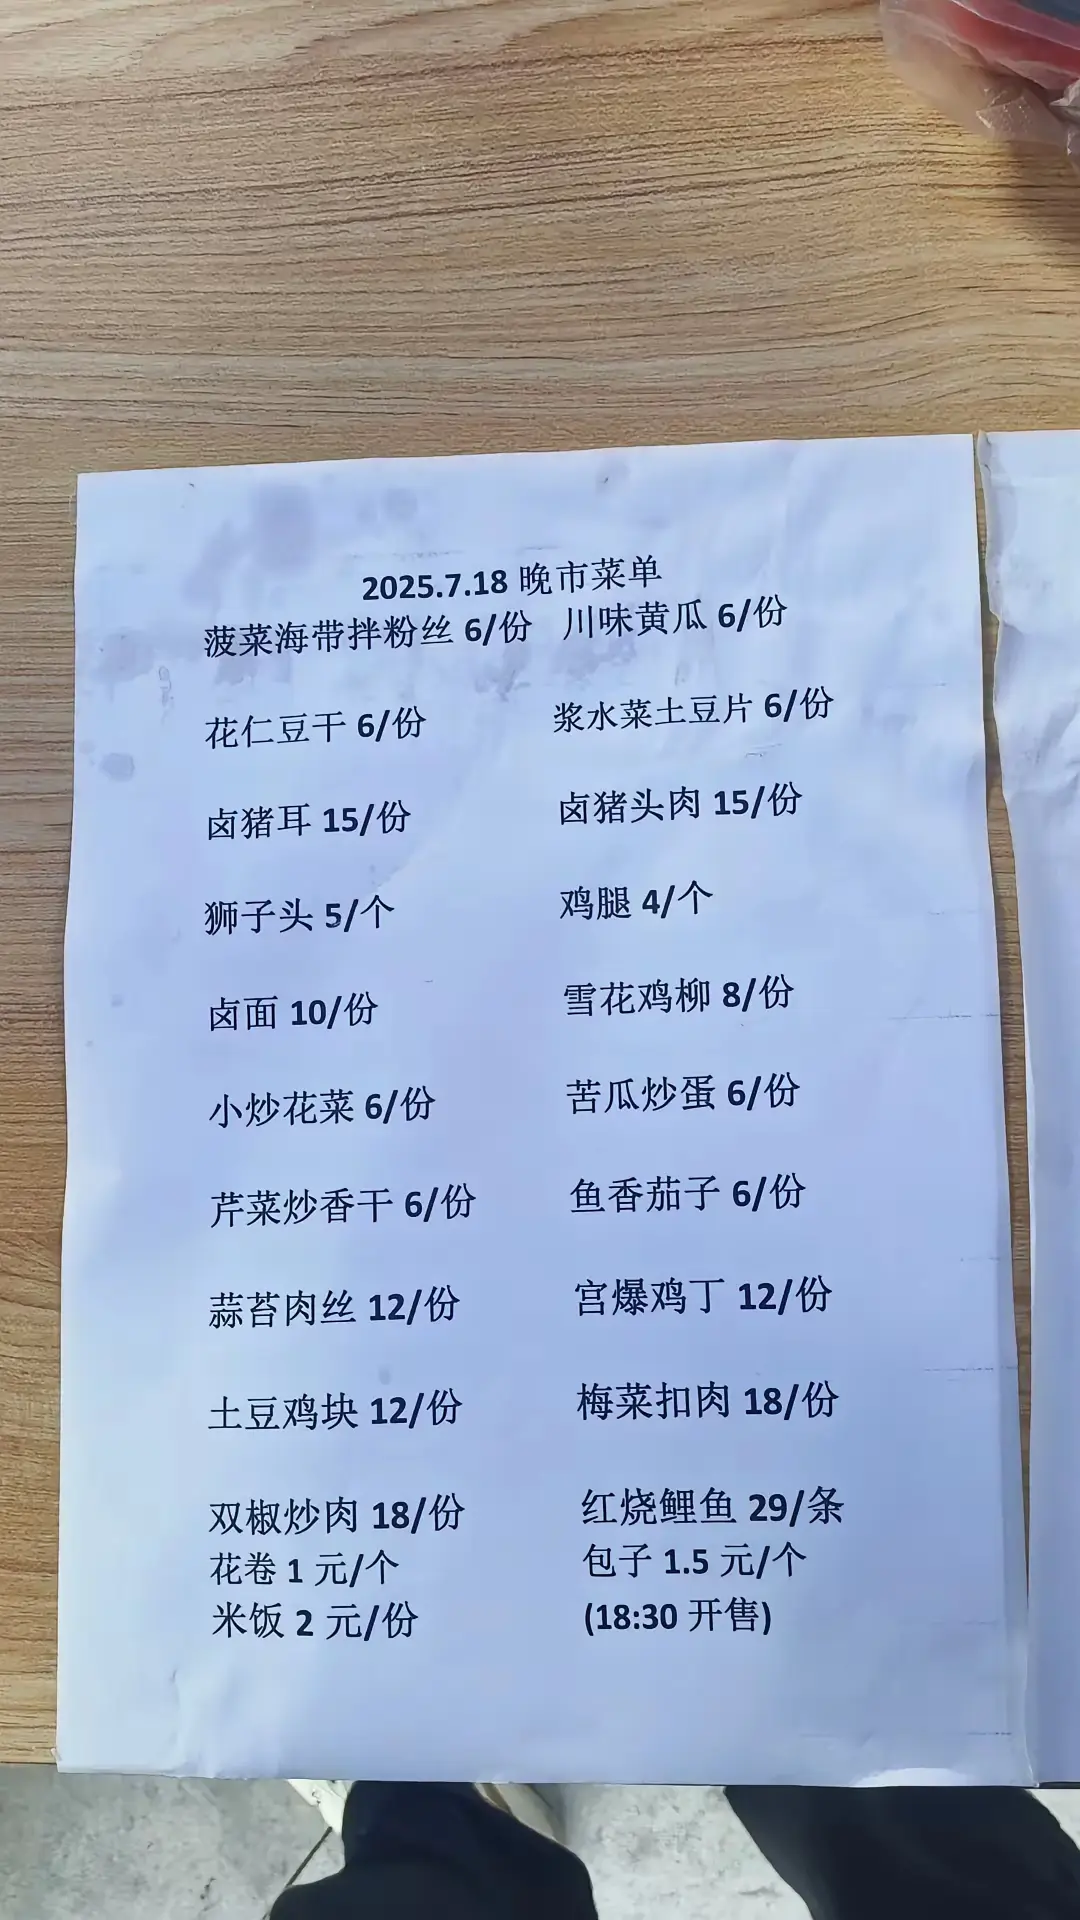 2025.7.18 晚市菜单
菠菜海带拌粉丝 6/份 川味黄瓜 6/份
花仁豆干 6/份 浆水菜土豆片 6/份
卤猪耳 15/份 卤猪头肉 15/份
狮子头 5/个 鸡腿 4/个
卤面 10/份 雪花鸡柳 8/份
小炒花菜 6/份 苦瓜炒蛋 6/份
芹菜炒香干 6/份 鱼香茄子 6/份
蒜苔肉丝 12/份 宫爆鸡丁 12/份
土豆鸡块 12/份 梅菜扣肉 18/份
双椒炒肉 18/份 红烧鲤鱼 29/条
花卷 1 元/个 包子 1.5 元/个
米饭 2 元/份 (18:30 开售)